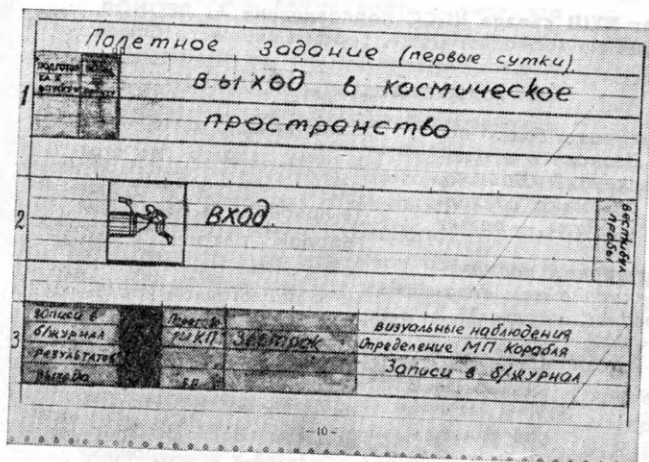 Полетное задание (первые сутки)
1
выход в космическое
пространство
2
вход
вестибул
пробы
3
записи в
б/журнал
результатов
выхода
Завтрак
визуальные наблюдения
Определение МП Корабля
Записи в б/журнал
-10-